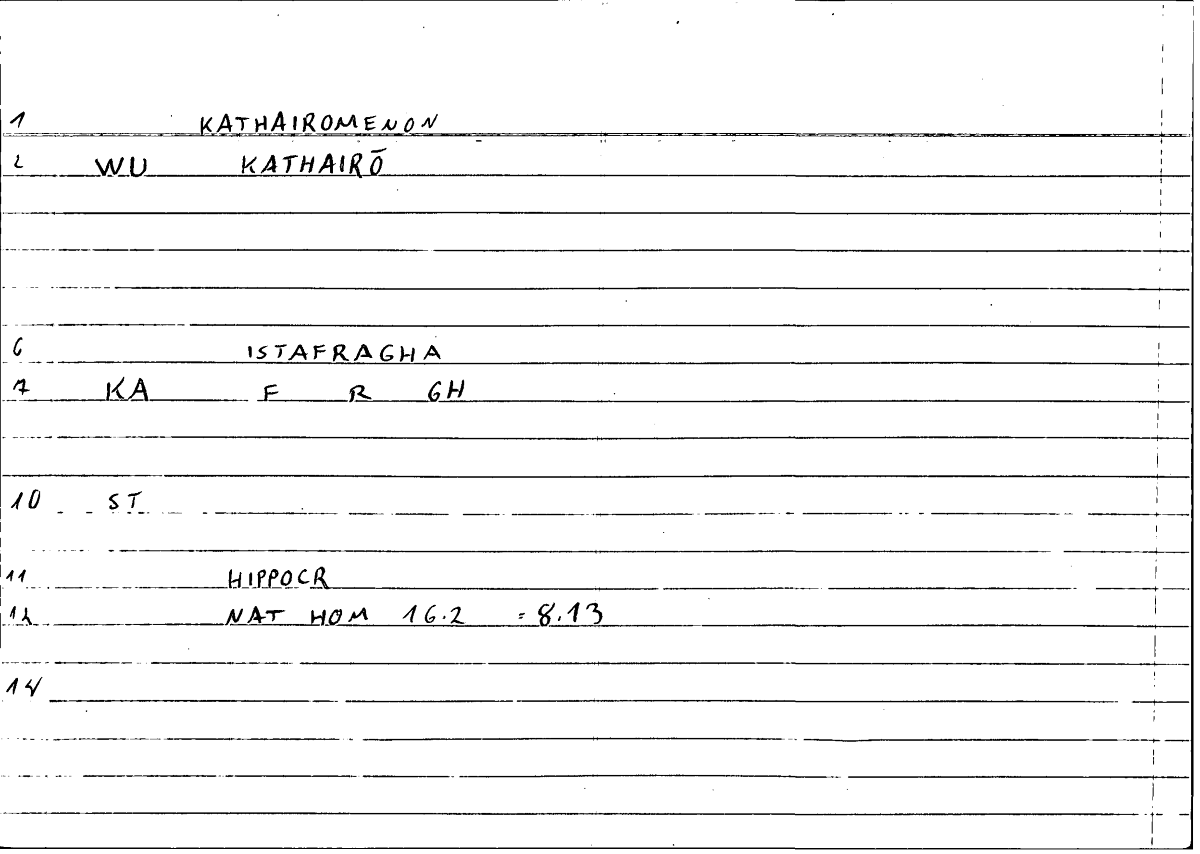 1 KATHAIROMENON
2 WU KATHAIRŌ
6 ISTAFRAGHA
7 KA F R GH
10 ST
11 HIPPOCR
12 NAT HOM 16.2 = 8.13
14